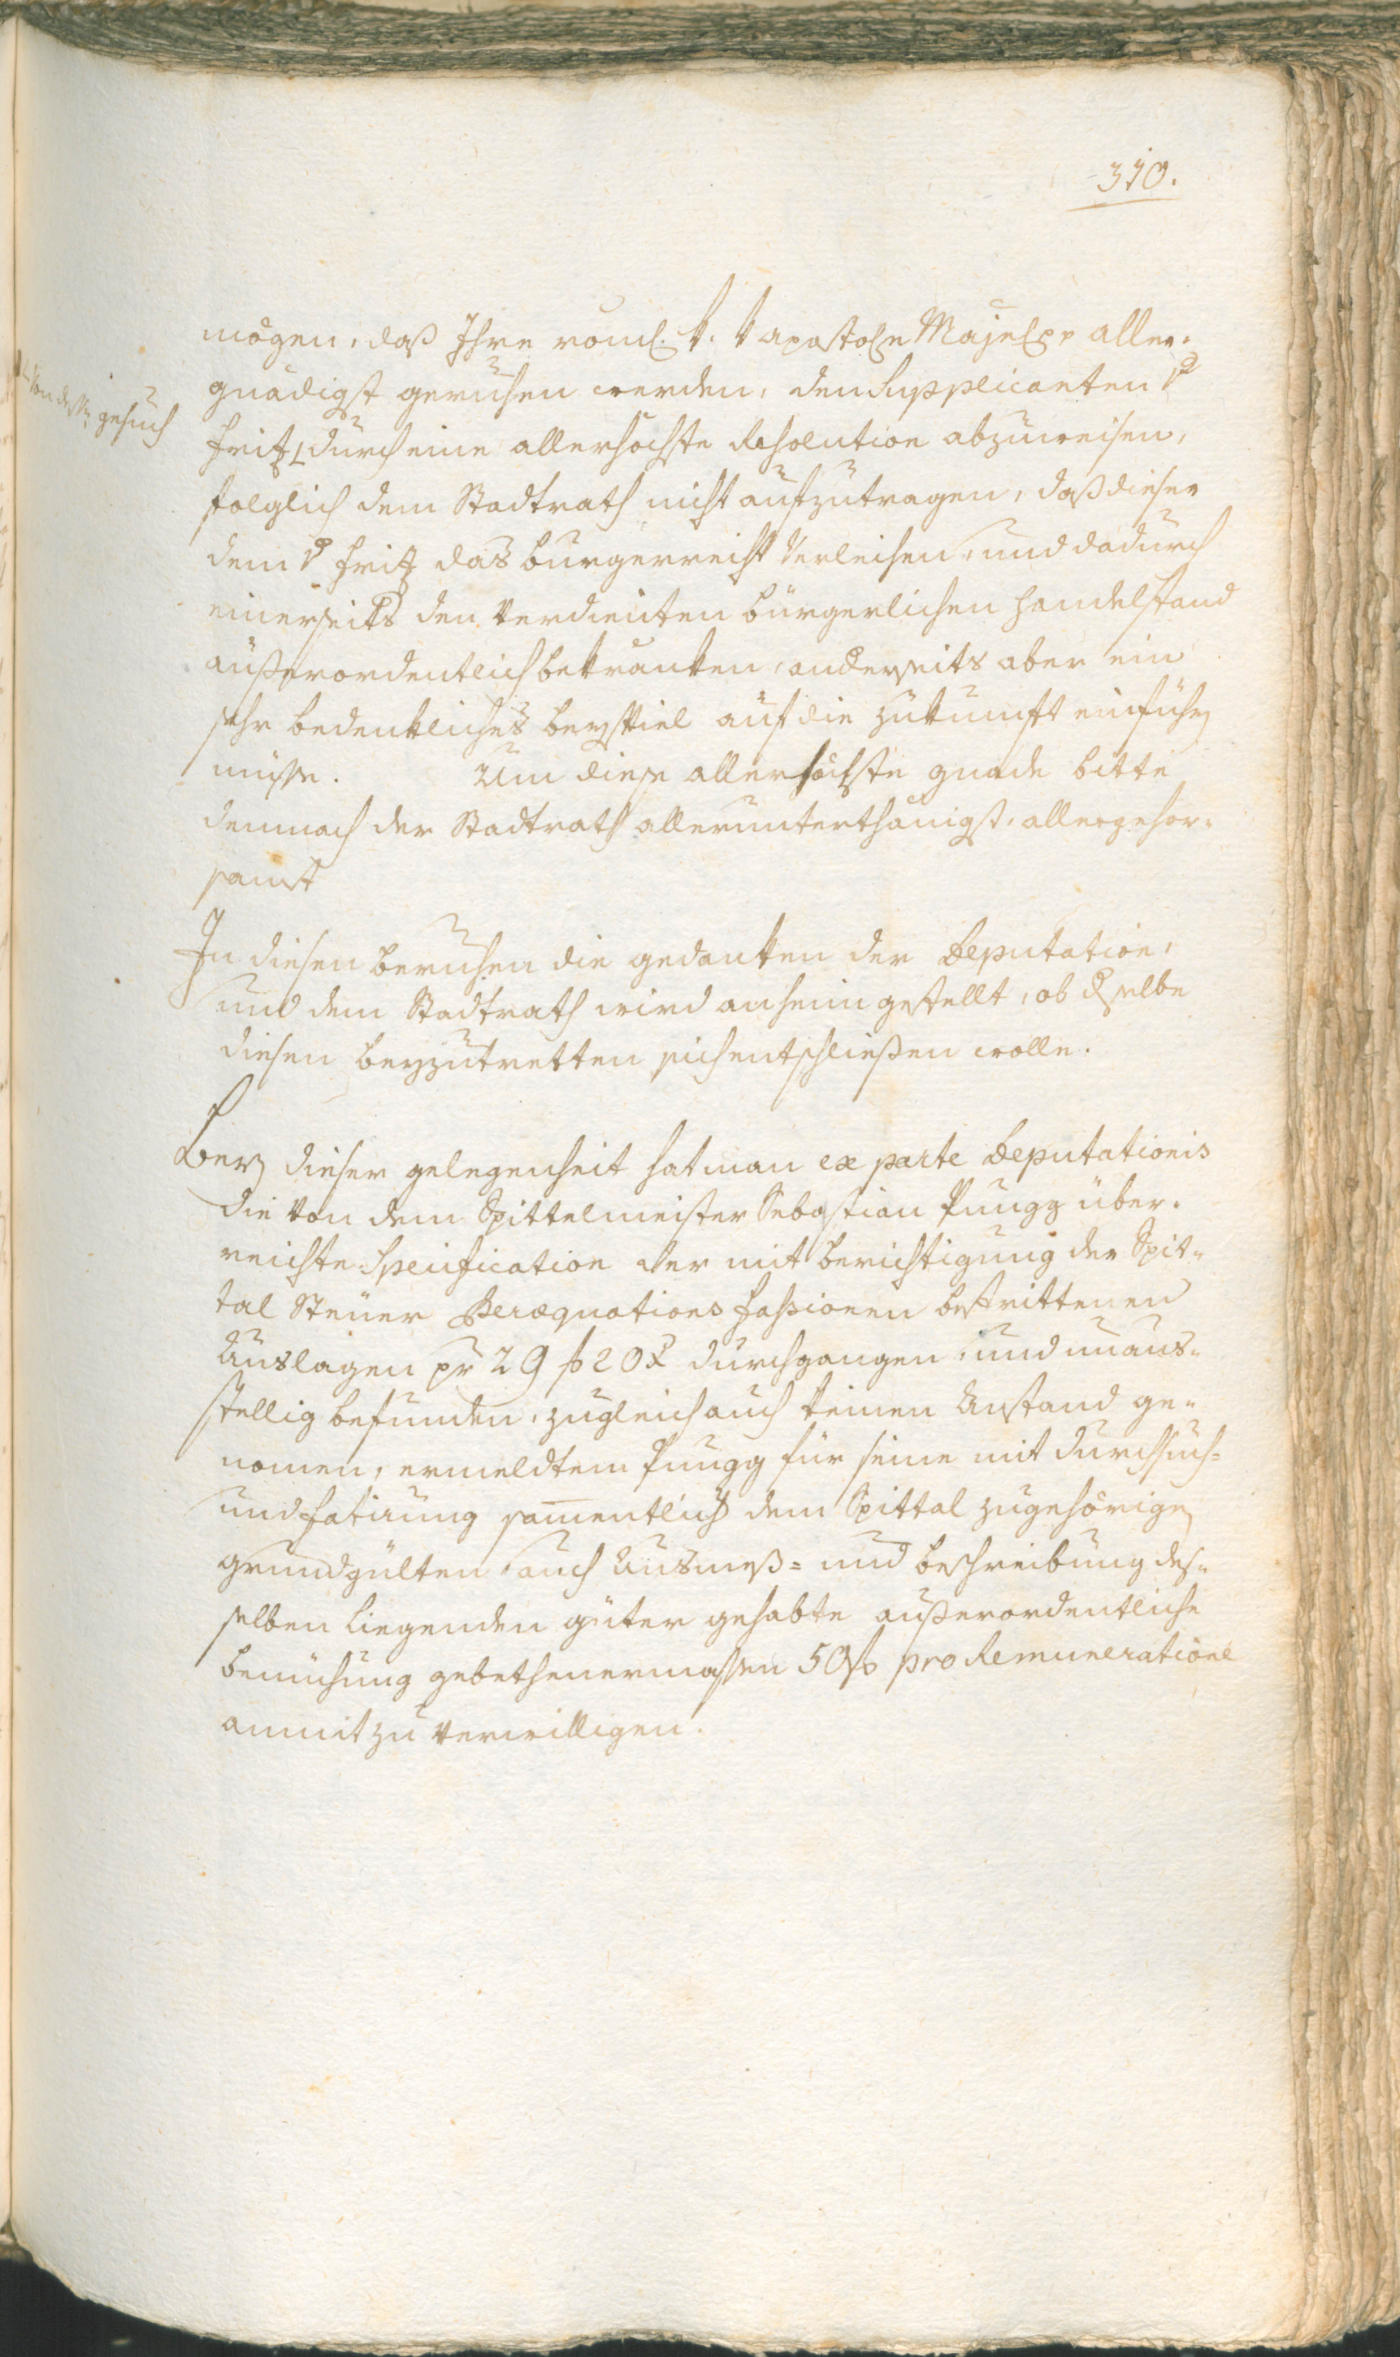 310.
mögen, daß Ihre röml. k. k. apostole Majest: aller-
gnädigst geruhen werden, den Supplicanten
Von deßen gesuch
Fritz durch eine allerhöchste Resolution abzuweisen,
folglich dem Stadtrath nicht aufzutragen, daß dieser
dem Fritz das burgerrecht verleihen, und dadurch
einerseits den verdienten bürgerlichen handelstand
außerordentlich bekränken, anderseits aber ein
sehr bedenkliches beyspiel auf die zukunft einführen
müsse. Um diese allerhöchste gnade bitte
demnach der Stadtrath allerunterthänigst, allergehor-
samst
In diesen beruhen die gedanken der Deputation,
und dem Stadtrath wird anheim gestellt, ob derselbe
diesen beyzutretten sich entschließen wolle.
Bey dieser gelegenheit hat man ex parte Deputationis
die von dem Spittelmeister Sebastian Pungg über-
reichte Specification der mit berichtigung der Spit-
tal Steuer Peræquations Faßionen bestrittenen
Auslagen pr 29 f 20 x durchgangen, und unaus-
stellig befunden, zugleich auch keinen Anstand ge-
nomen, ermeldtem Pungg für seine mit durchsuch-
und fatirung samentlich dem Spittal zugehörigen
grundgülten, auch Ausmeß- und beschreibung des-
selben liegenden güter gehabte außerordentliche
bemühung gebethenermaßen 50 f pro Remuneratione
anmit zu verwilligen.